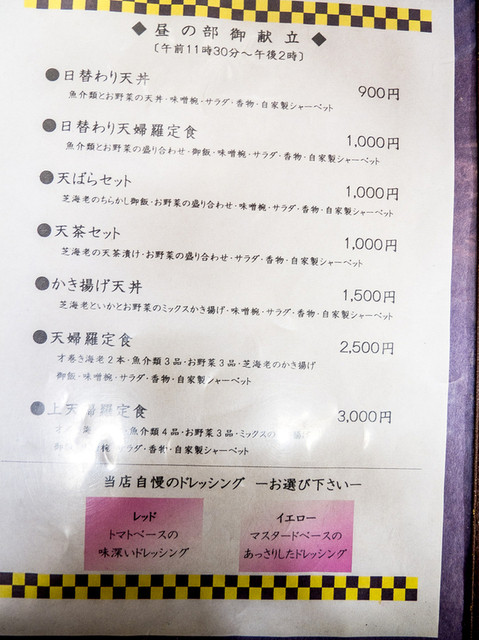 ◆昼の部御献立◆
〔午前11時30分～午後2時〕
●日替わり天丼 900円
魚介類とお野菜の天丼・味噌椀・サラダ・香物・自家製シャーベット
●日替わり天婦羅定食 1,000円
魚介類とお野菜の盛り合わせ・御飯・味噌椀・サラダ・香物・自家製シャーベット
●天ばらセット 1,000円
芝海老のちらかし御飯・お野菜の盛り合わせ・味噌椀・サラダ・香物・自家製シャーベット
●天茶セット 1,000円
芝海老の天茶漬け・お野菜の盛り合わせ・サラダ・香物・自家製シャーベット
●かき揚げ天丼 1,500円
芝海老といかとお野菜のミックスかき揚げ・味噌椀・サラダ・香物・自家製シャーベット
●天婦羅定食 2,500円
才巻き海老2本・魚介類3品・お野菜3品・芝海老のかき揚げ
御飯・味噌椀・サラダ・香物・自家製シャーベット
●上天婦羅定食 3,000円
魚介類4品・お野菜3品・ミックスの
味噌椀・サラダ・香物・自家製シャーベット
当店自慢のドレッシング －お選び下さい－
レッド
トマトベースの
味深いドレッシング
イエロー
マスタードベースの
あっさりしたドレッシング